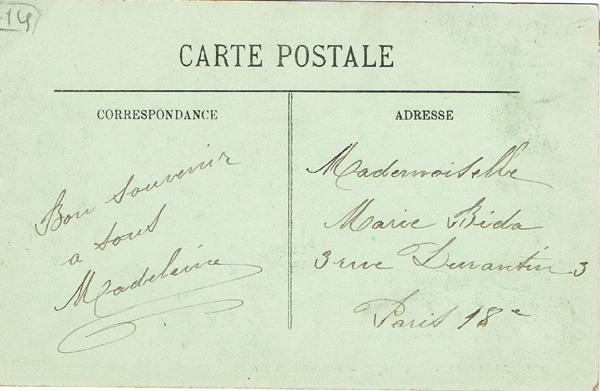 14
CARTE POSTALE
CORRESPONDANCE
Bon souvenir
a tous
Madeleine
ADRESSE
Mademoiselle
Marie Bida
3 rue Durantin 3
Paris 18e